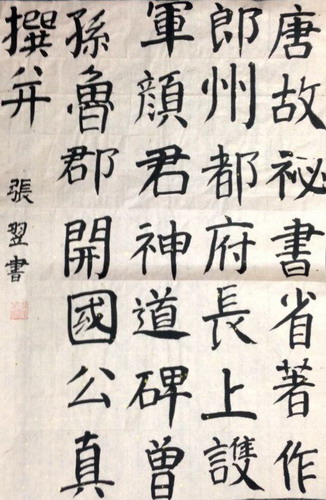 唐故祕書省著作
郎州都府長上護
軍顔君神道碑曾
孫魯郡開國公真
撰并
張翌書